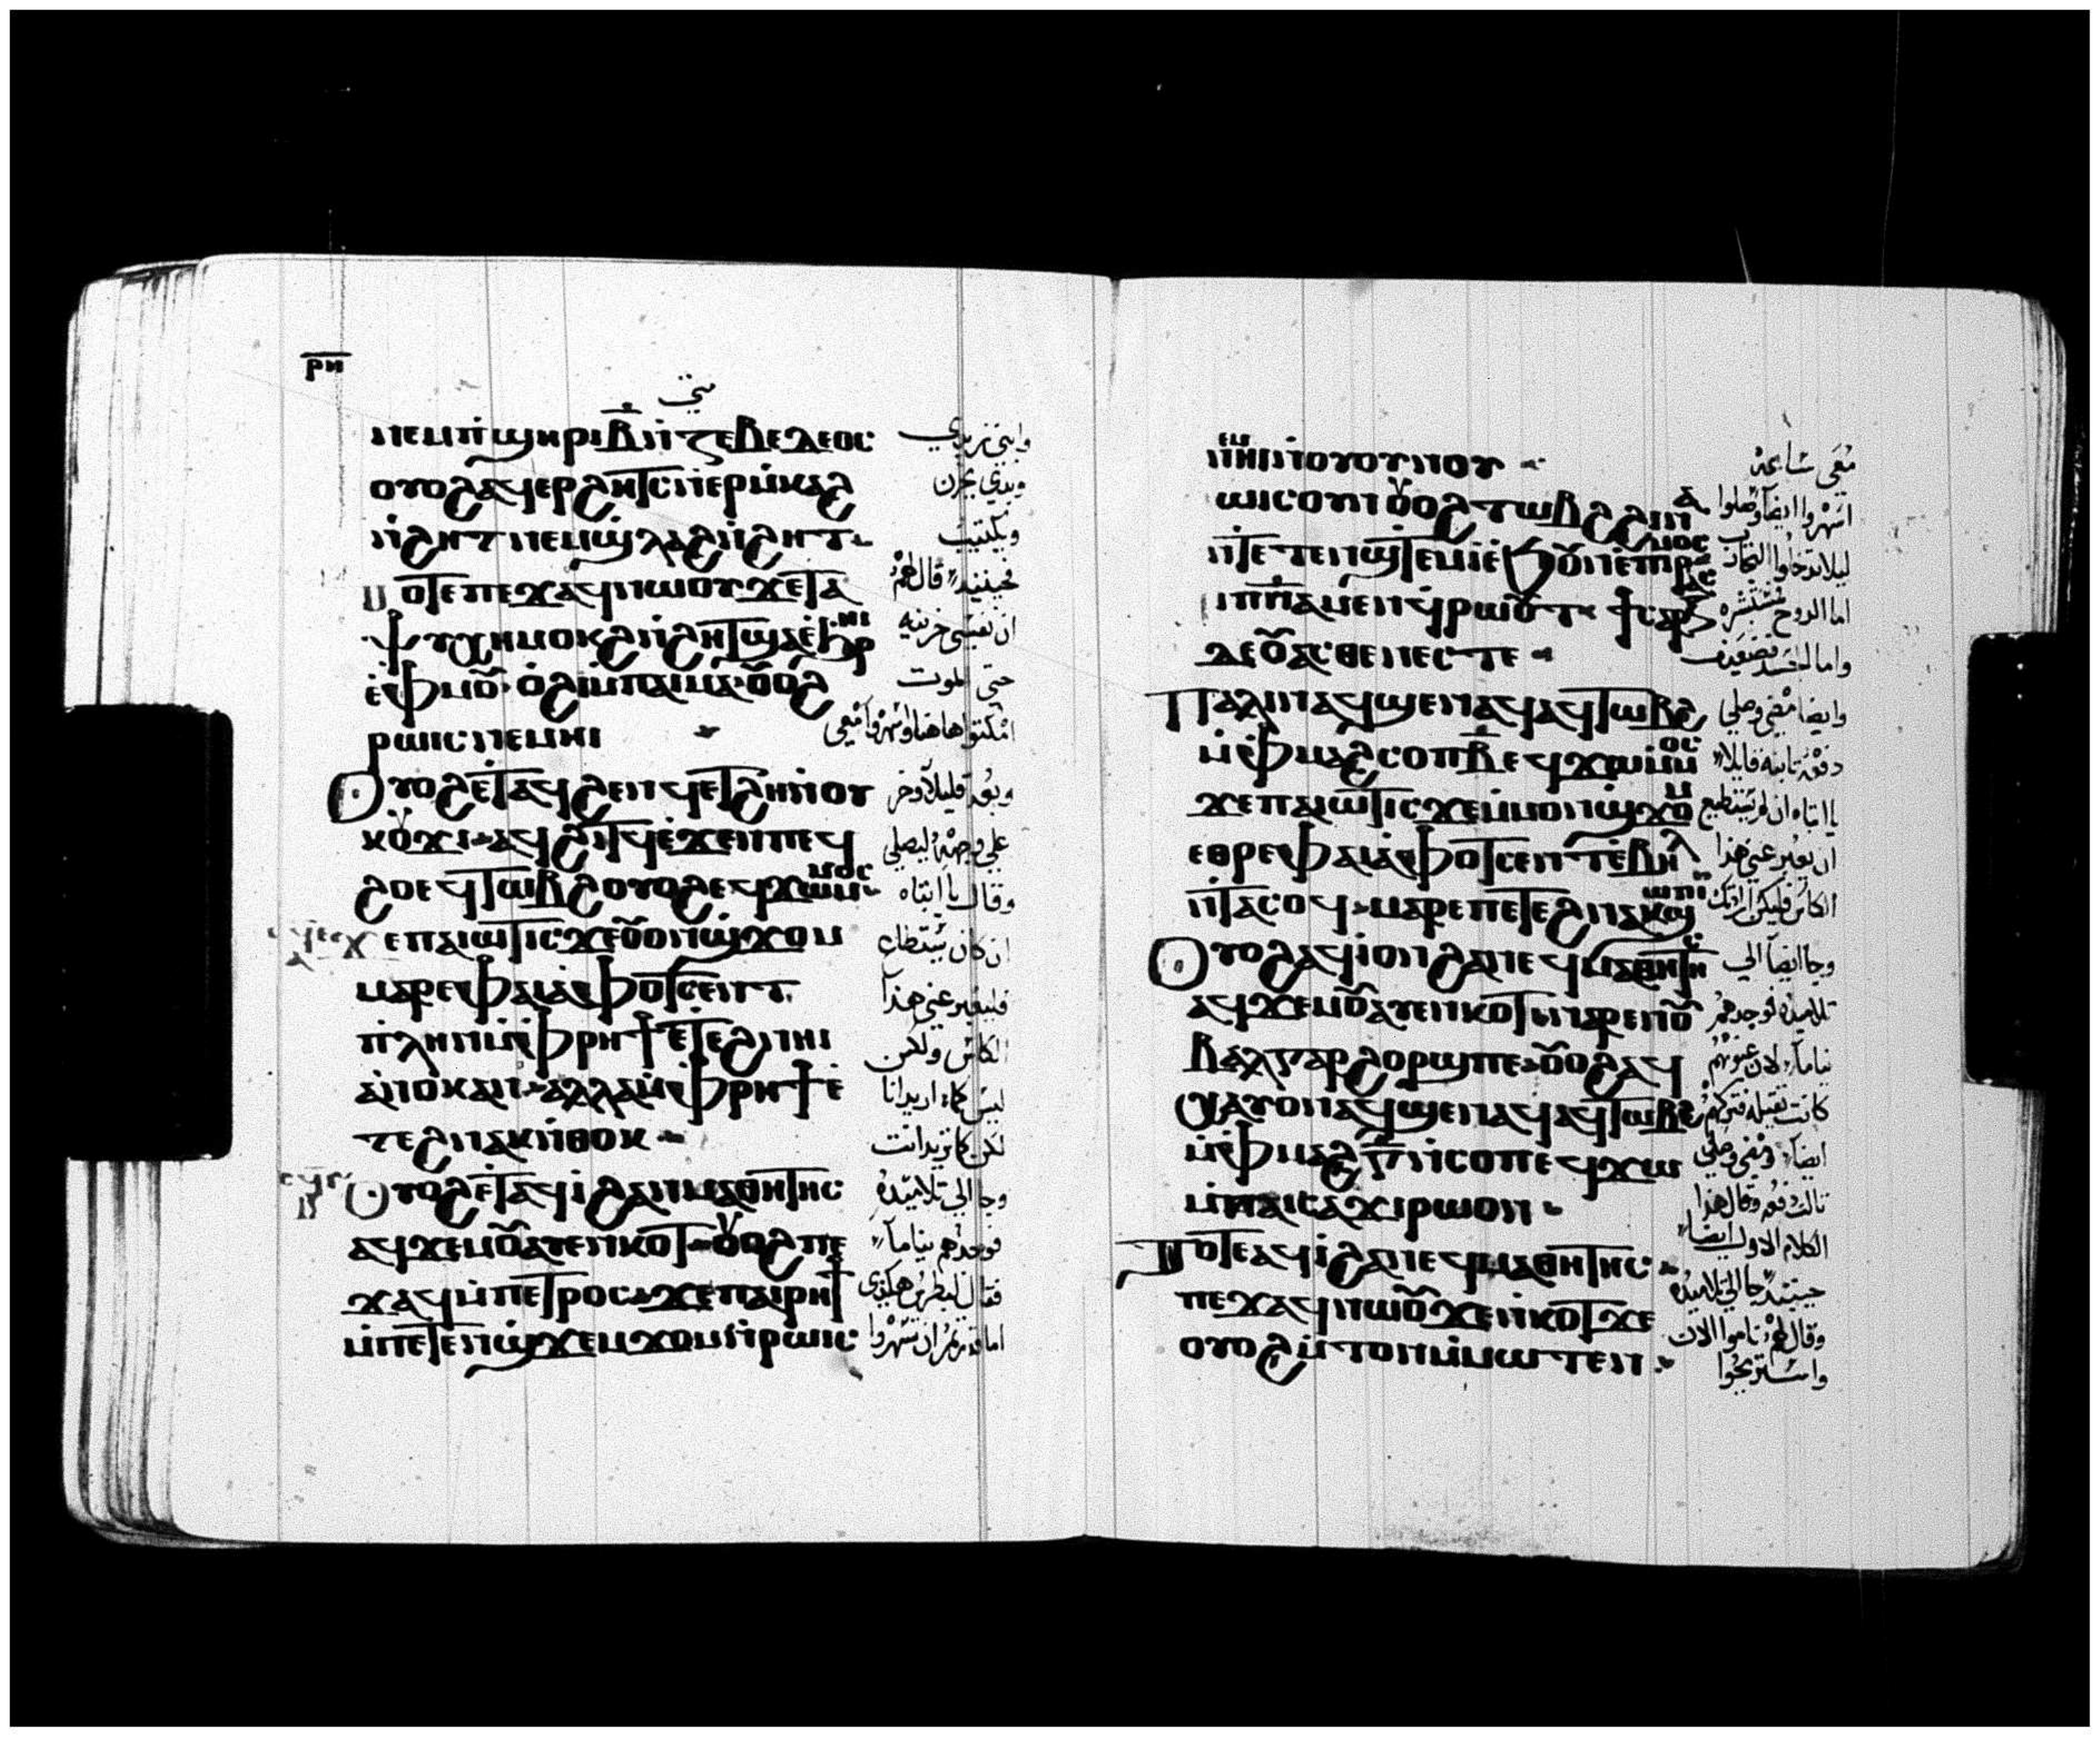 ⲣⲏ
متى
ⲛⲉⲙⲡ̀ϣⲏⲣⲓⲃ̅ⲛ̀ⲍⲉⲃⲉⲇⲉⲟⲥ
ⲟⲩⲟϩⲁϥⲉⲣϩⲏⲧⲥⲛ̀ⲉⲣⲙ̀ⲕⲁϩ
ⲛ̀ϩⲏⲧⲛⲉⲙϣ̀ⲗⲁϩⲛ̀ϩⲏⲧ
ⲧⲟⲧⲉⲡⲉϫⲁϥⲛⲱⲟⲩϫⲉⲧⲁ
ⲯⲩⲭⲏⲙⲟⲕϩⲛ̀ϩⲏⲧϣⲁⲉ̀ϩⲣⲏⲓ
ⲉ̀ⲫⲙⲟⲩ ⲟ̀ϩⲓⲙ̀ⲡⲁⲓⲙⲁ ⲟⲩⲟϩ
ⲣⲱⲓⲥⲛⲉⲙⲏⲓ
ⲟⲩⲟϩⲉ̀ⲧⲁϥϩⲉⲛϥⲉ̀ⲧϩⲏⲛ̀ⲟⲩ
ⲕⲟⲩϫⲓ ⲁϥϩⲓⲧϥⲉ̀ϫⲉⲛⲡⲉϥ
ϩⲟⲉϥⲧⲱⲃϩⲟⲩⲟϩⲉϥϫⲱⲙ̀ⲙⲟⲥ
ϫⲉⲡⲁⲓⲱⲧⲓⲥϫⲉⲟⲩⲟⲛϣ̀ϫⲟⲙ
ⲙⲁⲣⲉⲫⲁⲓⲁ̀ⲫⲟⲧⲥⲉⲛⲧ
ⲡ̀ⲗⲏⲛⲙ̀ⲫⲣⲏϯⲉ̀ⲧⲉϩⲛⲏⲓ
ⲁ̀ⲛⲟⲕⲁⲛ ⲁⲗⲗⲁⲙ̀ⲫⲣⲏϯⲉ̀
ⲧⲉϩⲛⲁⲕⲛ̀ⲑⲟⲕ
ⲟⲩⲟϩⲉ̀ⲧⲁϥⲓ̀ϩⲁⲛⲓⲙⲁⲑⲏⲧⲏⲥ
ⲁϥϫⲉⲙⲟⲩⲁⲩⲉⲛⲕⲟⲧ ⲟⲩⲟϩⲡⲉ
ϫⲁϥⲙ̀ⲡⲉⲧⲣⲟⲥ ϫⲉⲡⲁⲓⲣⲏϯ
ⲙ̀ⲡⲉⲧⲉⲛϣ̀ϫⲉⲙϫⲟⲙⲛ̀ⲣⲱⲓⲥ
وابني زبدي
وبدي يحزن
ويكتيب
فحينيذ قال لهم
ان نفسي حزينه
حتى الموت
امكثوا هاهنا واسهروا معي
وبعد قليلا وخر
على وجهه ليصلي
وقال يا ابتاه
ان كان يستطاع
فليعبر عني هذا
الكاس ولكن
ليس كما اريد انا
لكن كما تريد انت
وجا الى تلاميذه
فوجدهم نياما
فقال لبطرس هكذى
اما قدرتم ان تسهروا
ⲛⲉⲙⲏⲓⲛ̀ⲟⲩⲟⲩⲛⲟⲩ
ⲣⲱⲓⲥⲟⲩⲛⲟⲩⲟϩⲧⲱⲃϩϩⲓⲛⲁ
ⲛ̀ⲧⲉⲧⲉⲛϣⲧⲉⲙⲓ̀ⲉ̀ϧⲟⲩⲛⲉ̀ⲡⲓⲣⲁⲥⲙⲟⲥ
ⲡⲓⲡ̅ⲛ̅ⲁ̅ⲙⲉⲛϥ̀ⲣⲱⲟⲩⲧ ϯⲥⲁⲣⲝ
ⲇⲉⲟⲩⲁⲥⲑⲉⲛⲉⲥⲧⲉ
ⲡⲁⲗⲓⲛⲁϥϣⲉⲛⲁϥⲁϥⲧⲱⲃϩ
ⲙ̀ⲫⲙⲁϩⲥⲟⲡⲃ̅ⲉϥϫⲱⲙ̀ⲙⲟⲥ
ϫⲉⲡⲁⲓⲱⲧⲓⲥϫⲉⲙ̀ⲙⲟⲛϣ̀ϫⲟⲙ
ⲉⲑⲣⲉⲫⲁⲓⲁ̀ⲫⲟⲧⲥⲉⲛⲧⲉ̀ⲃⲏⲗ
ⲛ̀ⲧⲁⲥⲟϥ ⲙⲁⲣⲉⲡⲉⲧⲉϩⲛⲁⲕϣⲱⲡⲓ
ⲟⲩⲟϩⲁϥⲓ̀ⲟⲛϩⲁⲛⲉϥⲙⲁⲑⲏⲧⲏⲥ
ⲁϥϫⲉⲙⲟⲩⲁⲩⲉⲛⲕⲟⲧ ⲛⲁⲣⲉⲛⲟⲩ
ⲃⲁⲗⲅⲁⲣϩⲟⲣϣⲡⲉ ⲟⲩⲟϩⲁϥ
ⲭⲁⲩⲟⲛⲁϥϣⲉⲛⲁϥⲁϥⲧⲱⲃϩ
ⲙ̀ⲫⲙⲁϩⲅ̅ⲛ̀ⲥⲟⲡⲉϥϫⲱ
ⲙ̀ⲡⲁⲓⲥⲁϫⲓⲣⲱⲟⲛ
ⲧⲟⲧⲉⲁϥⲓ̀ϩⲁⲛⲉϥⲙⲁⲑⲏⲧⲏⲥ
ⲡⲉϫⲁϥⲛⲱⲟⲩϫⲉⲛ̀ⲕⲟⲧϫⲉ
ⲟⲩⲟϩⲙ̀ⲧⲟⲛⲙ̀ⲙⲱⲧⲉⲛ
معى ساعه
اسهروا ايضا وصلوا
ليلا تدخلوا التجارب
اما الروح فمستبشره
واما الجسد فضعيف
وايضا مضى وصلى
دفعه ثانيه قايلا
يا ابتاه ان لم يستطيع
ان يعبر عني هذا
وجا ايضا الى
تلاميذه فوجدهم
نياما لان عيونهم
كانت ثقيله فتركهم
ايضا ومضى وصلى
ثالث دفعه وقال هذا
الكلام الاول ايضا
حينيذ جا الى تلاميذه
وقال لهم ناموا الان
واستريحوا